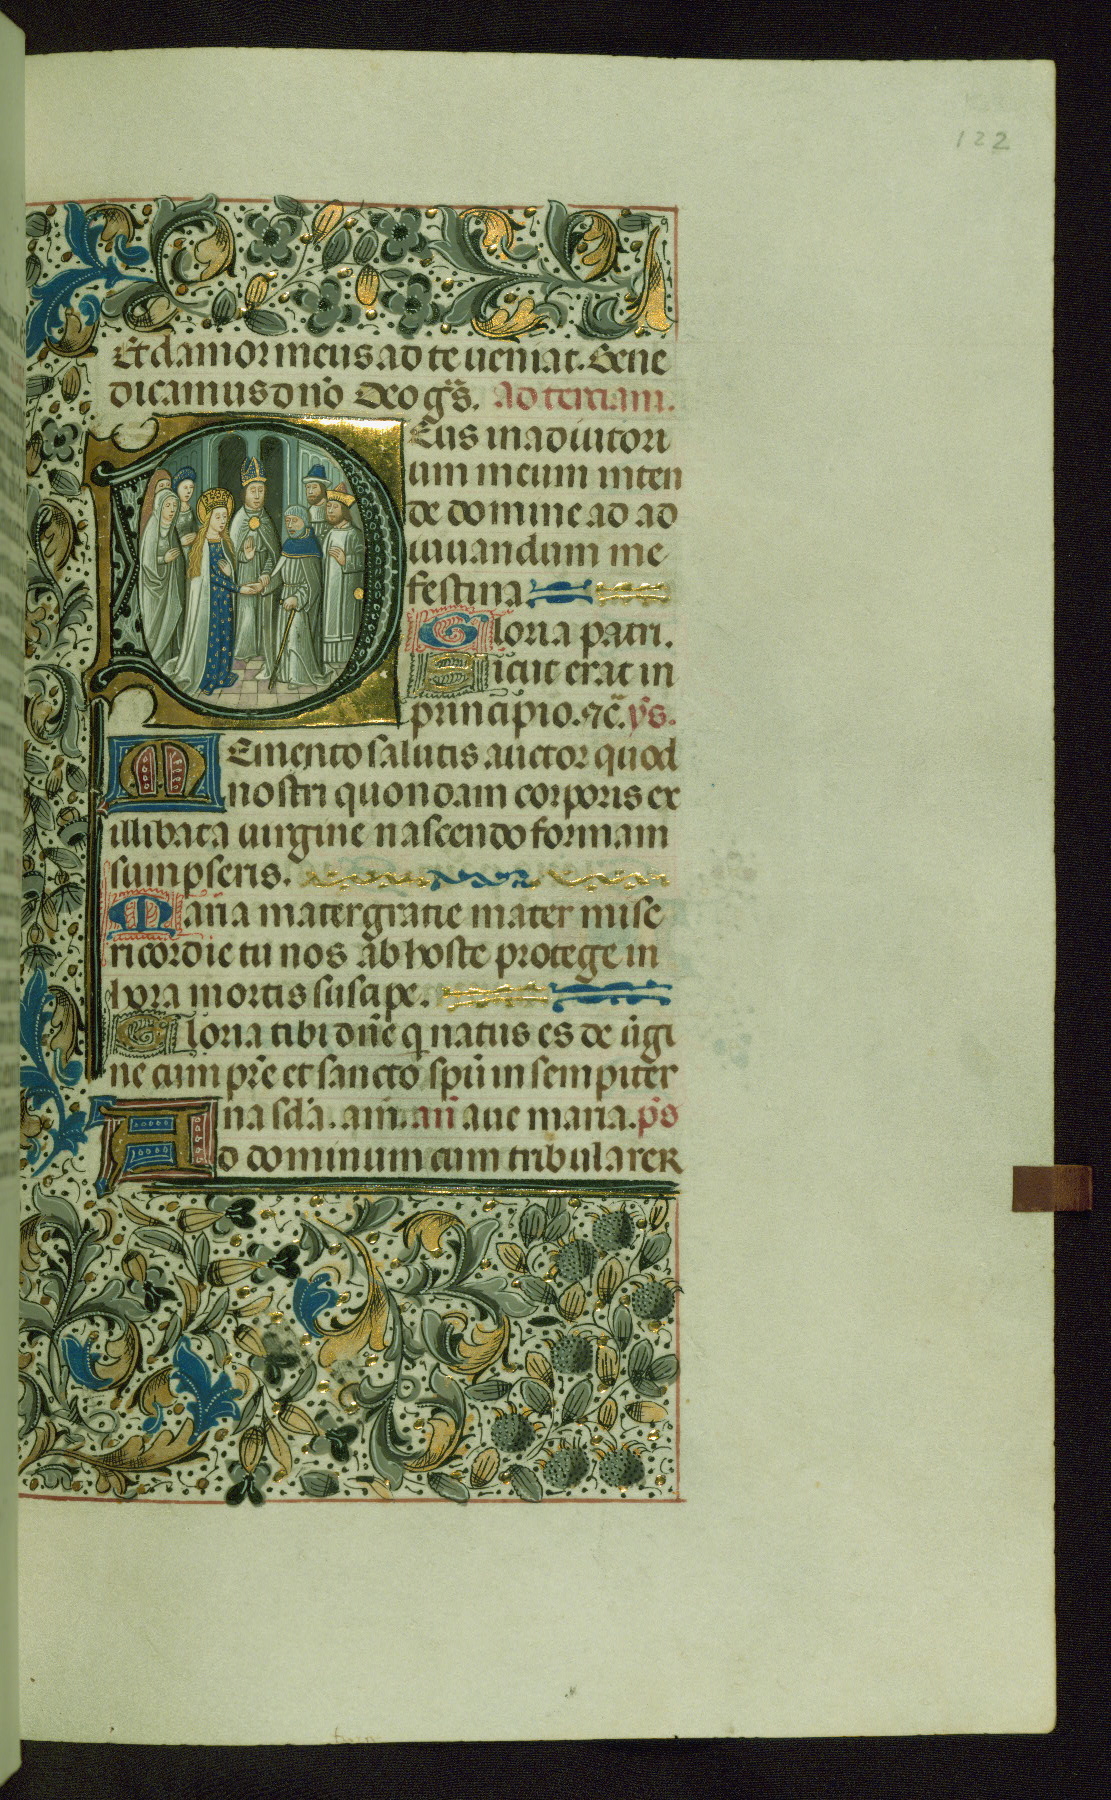 122
Et clamor meus ad te ueniat. Bene
dicamus dño Deo gr̃s. Ad terciam.
Deus in adiutori
um meum inten
de domine ad ad
iuuandum me
festina
Gloria patri.
Sicut erat in
principio. ⁊c̃. ym̃s.
Memento salutis auctor quod
nostri quondam corporis ex
illibata uirgine nascendo formam
sumpseris.
Maria mater gratie mater mise
ricordie tu nos ab hoste protege in
hora mortis suscipe.
Gloria tibi dñe q̃ natus es de ũgi
ne cum pr̃e et sancto spũ in sempiter
na scl̃a. am̃. añ aue maria. p̃s
Ad dominum cum tribularer